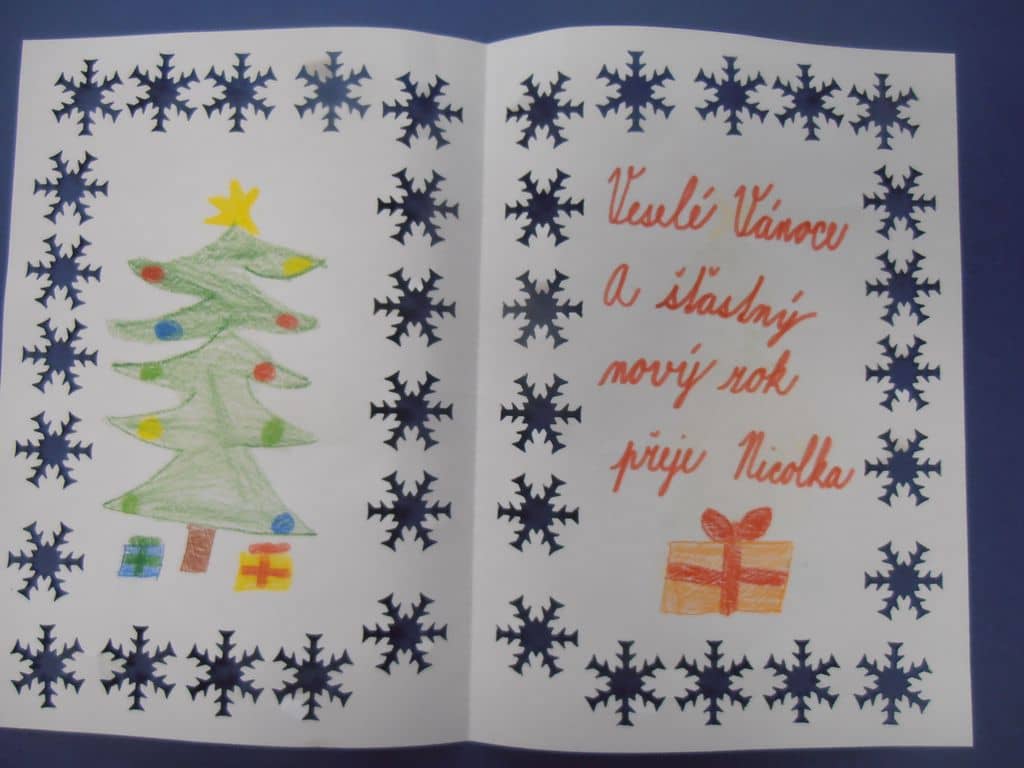 Veselé Vánoce
A šťastný
nový rok
přeje Nicolka